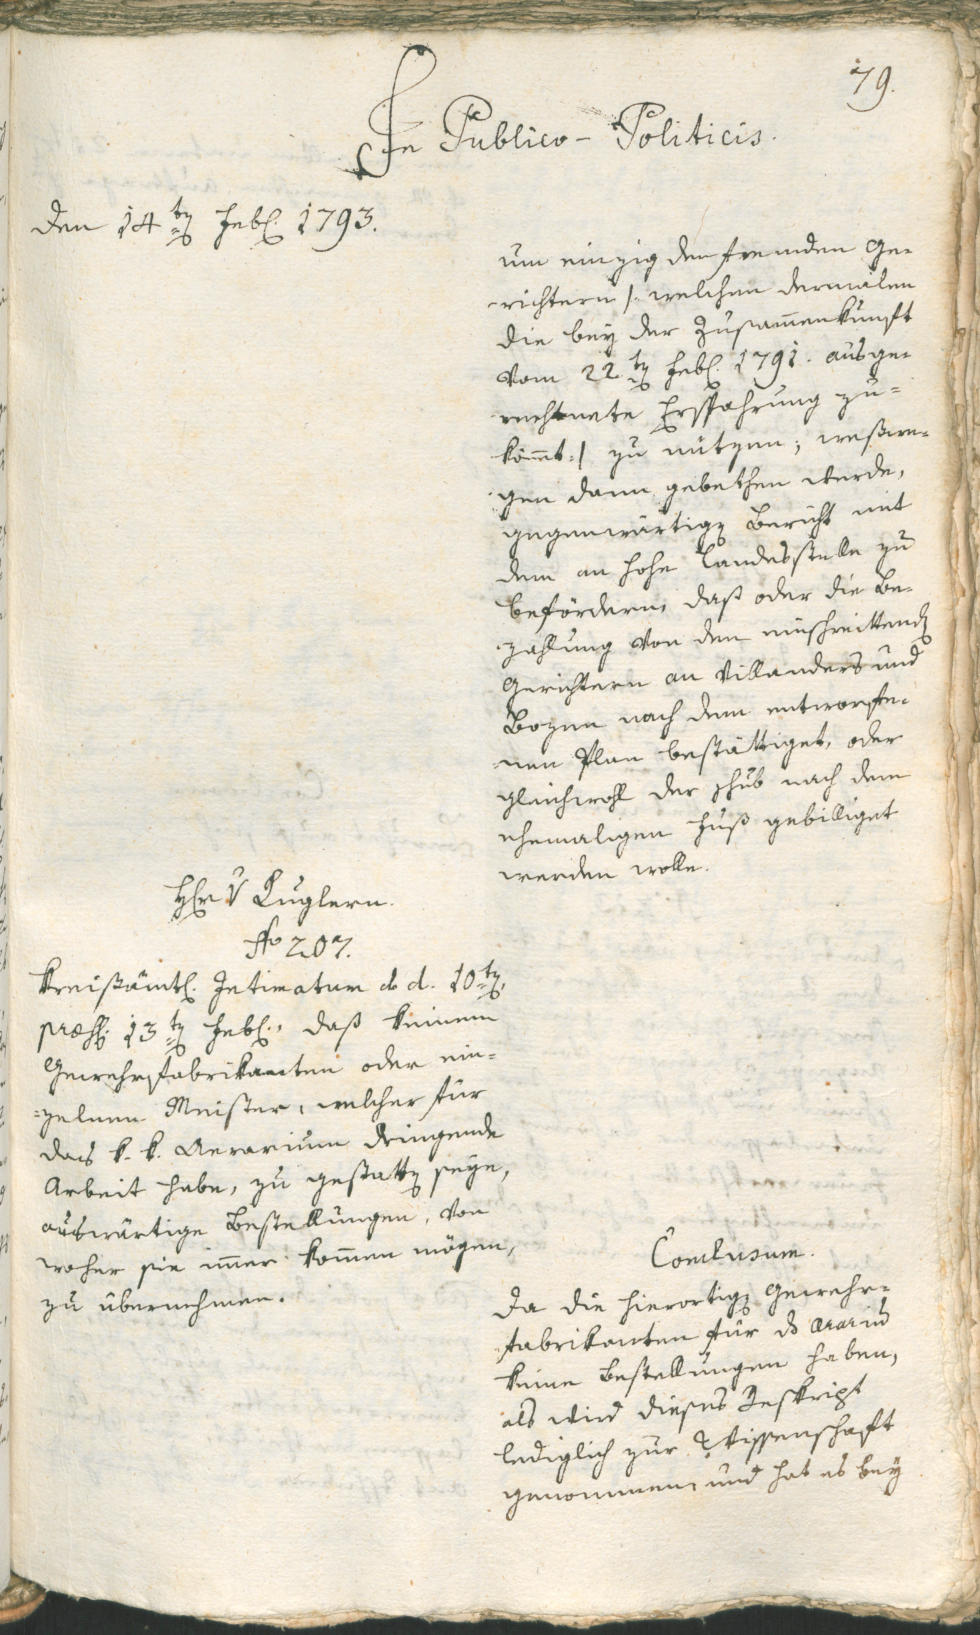 79.
In Publico-Politicis.
den 14ten Feb. 1793.
um einzig den fremden Ge-
richtern /: welchen dermalen
die bey der Zusamenkunft
vom 22ten Feb. 1791. ausge-
rechnete Erspahrung zu-
kömt :/ zu nützen; weßwe-
gen dann gebethen werde,
gegenwärtigen Bericht mit
dem an hohe Landesstelle zu
befördern, daß oder die Be-
zahlung von den einschreittenden
Gerichtern an Villanders und
Bozen nach dem entworffe-
nen Plan bestättiget, oder
gleichwohl der Schub nach dem
ehemaligen Fuß gebilliget
werden wolle.
H. v Kuglern.
No 207.
Kreißämtl. Intimatum d. d. 10ten,
præs. 13ten Feb., daß keinem
Gewehrfabrikanten oder ein-
zelnen Meister, welcher für
das k. k. Aerarium dringende
Arbeit habe, zu gestatten seye,
auswärtige Bestellungen, von
woher sie imer komen mögen,
zu übernehmen.
Conclusum.
Da die hierortigen Gewehr-
fabrikanten für ds Ærarium
keine Bestellungen haben,
als wird dieses Reskript
lediglich zur Wissenschaft
genommen, und hat es bey